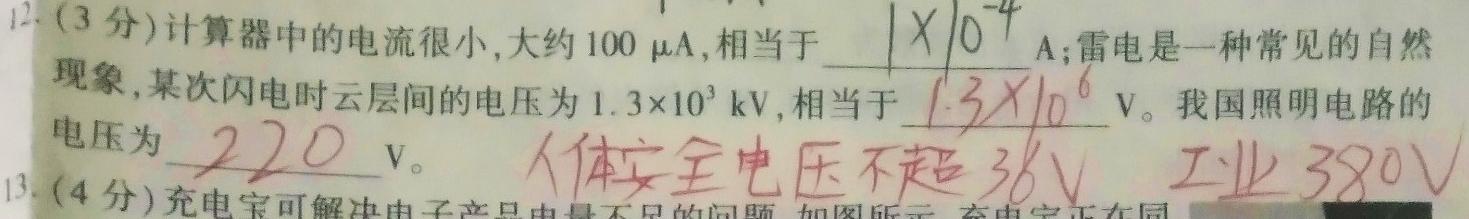 12. (3 分)计算器中的电流很小,大约 100 μA,相当于 1×10⁻⁴ A;雷电是一种常见的自然
现象,某次闪电时云层间的电压为 1.3×10³ kV,相当于 1.3×10⁶ V。我国照明电路的
电压为 220 V。 人体安全电压不超36V 工业380V
13. (4 分)充电宝可解决电子产品电量不足的问题,如图所示,充电宝正在同